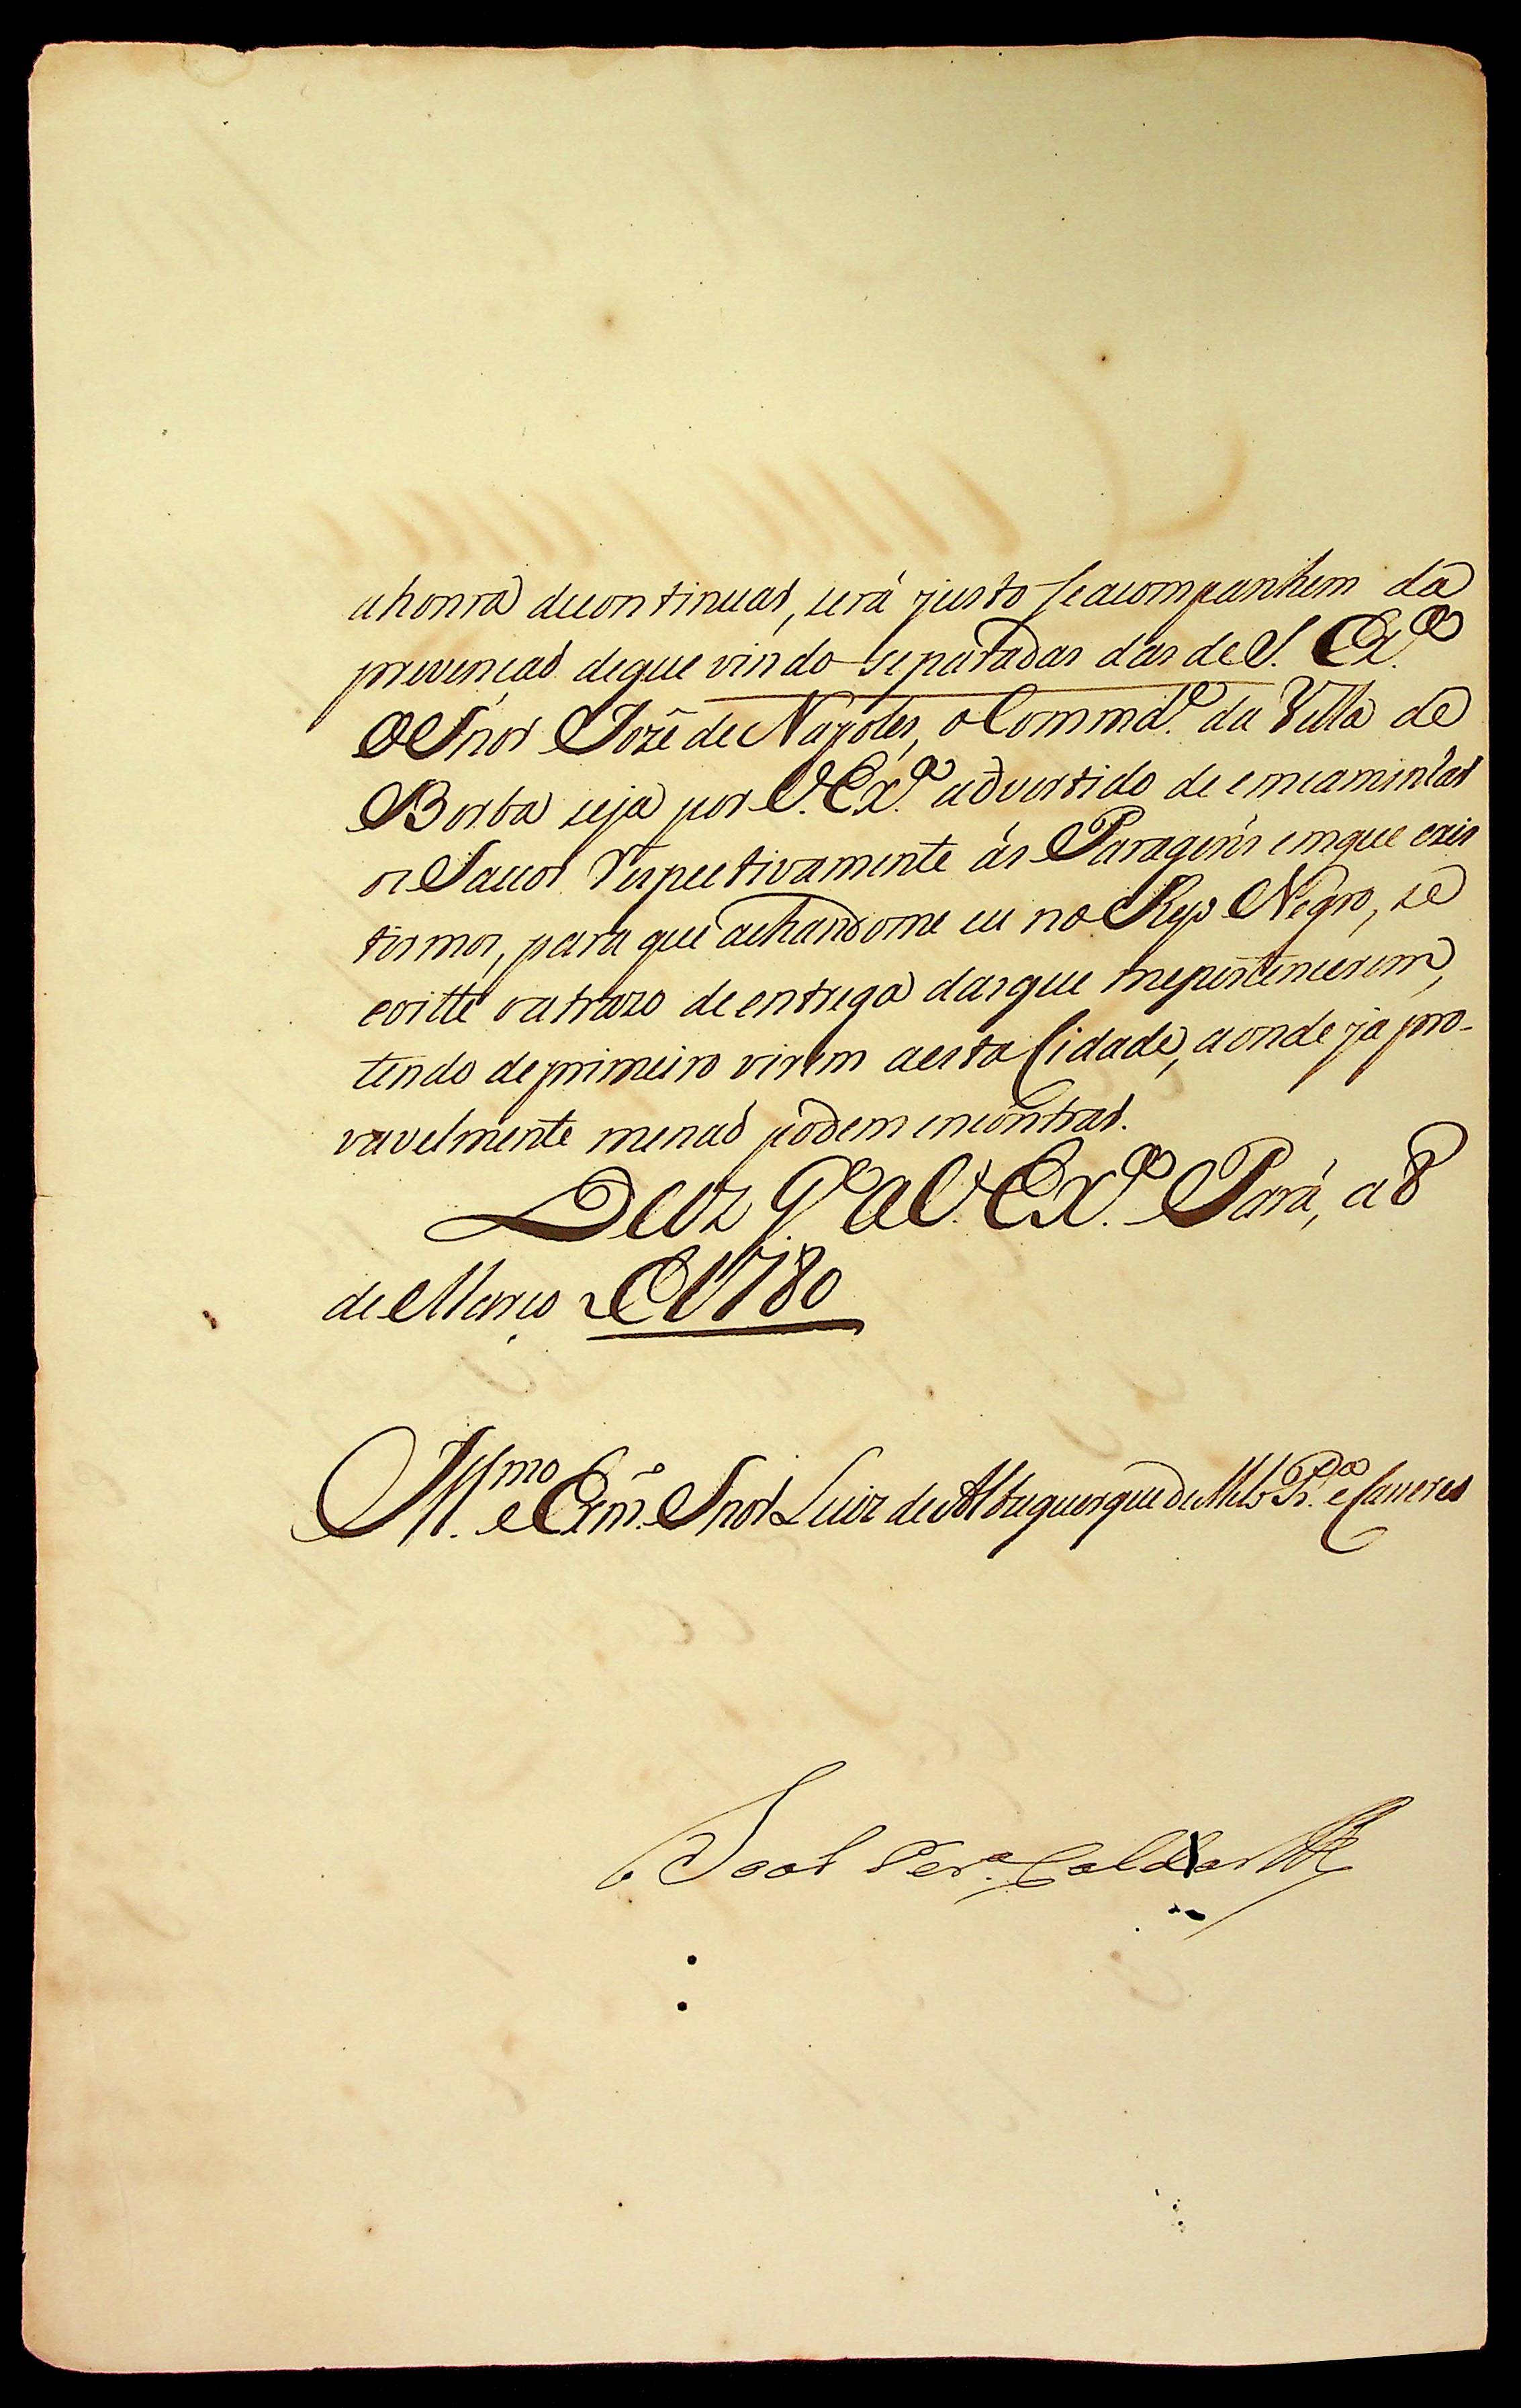 a honra de continuar, será justo se acompanhem da
prevençaõ de que vindo separadas das de S. Ex.ª
O Snor Jozé de Napoles, o Commd.e da Villa de
Borba seja por V. Ex.ª advertido de emcaminhar
os Sacos respectivamente ás Paragens em que exis
tirmos, para que achandome eu no Ryo Negro, se
evitte o atrazo de entrega das que me pertencerem,
tendo de primeiro virem a esta Cidade, aonde ja pro-
vavelmente me naõ podem encontrar.
Deoz G.e a V. Ex.ª Pará, a 8
de Março de 1780
Ill.mo e Exm.o Snor Luiz de Albuquerque de Mello Pr.ª e Caceres
Joaõ Per.ª Caldas